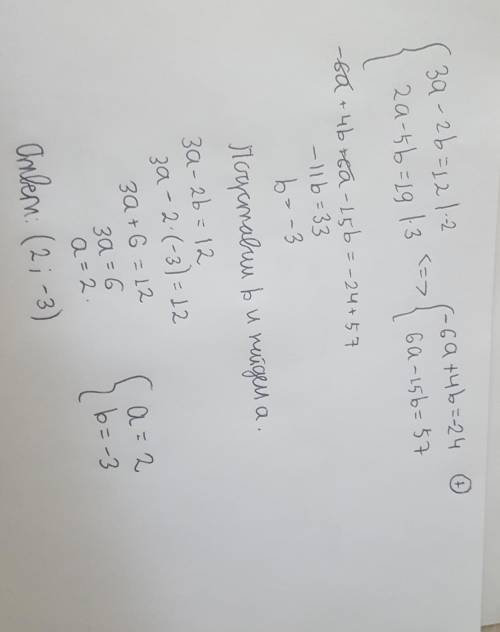 { 3a - 2b = 12 | ·2
{ 2a - 5b = 19 | ·3
<=> { -6a + 4b = -24
{ 6a - 15b = 57
+
-6a + 4b + 6a - 15b = -24 + 57
-11b = 33
b = -3
Подставим b и найдем a.
3a - 2b = 12
3a - 2·(-3) = 12
3a + 6 = 12
3a = 6
a = 2.
{ a = 2
{ b = -3
Ответ: (2; -3)